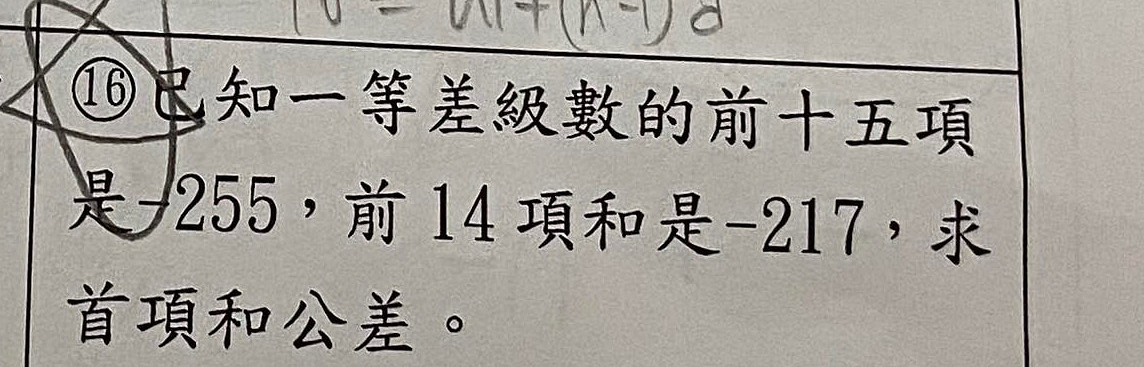 ⑯已知一等差級數的前十五項
是-255，前14項和是-217，求
首項和公差。